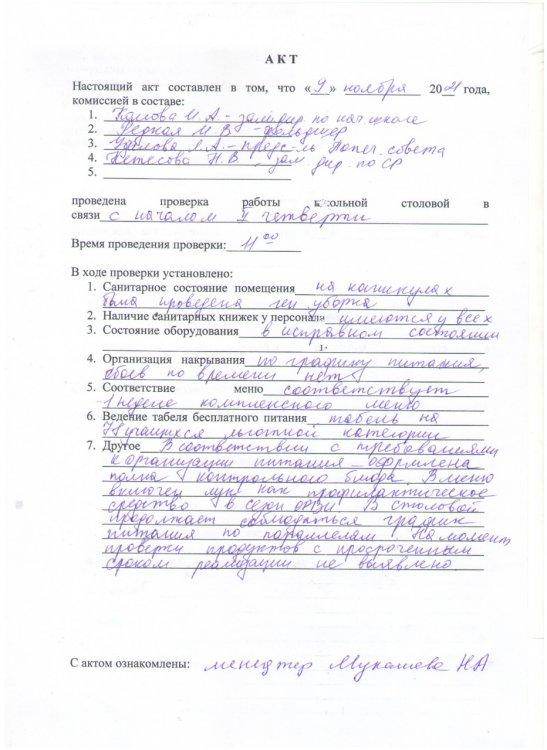 АКТ
Настоящий акт составлен в том, что «9» ноября 2021 года,
комиссией в составе:
1. И.А - зам.дир по нач.школе
2. М В - фельдшер
3. Л.А - предс-ль Попеч. совета
4. Кетесова Н.В зам дир. по СР
5.
проведена проверка работы школьной столовой в
связи с началом II четверти
Время проведения проверки: 11 00
В ходе проверки установлено:
1. Санитарное состояние помещения на каникулах
была проведена ген уборка
2. Наличие санитарных книжек у персонала имеются у всех
3. Состояние оборудования в исправном состоянии
4. Организация накрывания по графику питания,
сбоев по времени нет
5. Соответствие меню соответствует
1 неделе комплексного меню
6. Ведение табеля бесплатного питания табель на
учащихся льготной категории
7. Другое В соответствии с требованиями
к организации питания оформлена
полка контрольного блюда. В меню
включен лук как профилактическое
средство в сезон ОРВИ. В столовой
продолжает соблюдаться график
питания по параллелям На момент
проверки продуктов с просроченным
сроком реализации не выявлено.
С актом ознакомлены: менеджер Мукашева НА